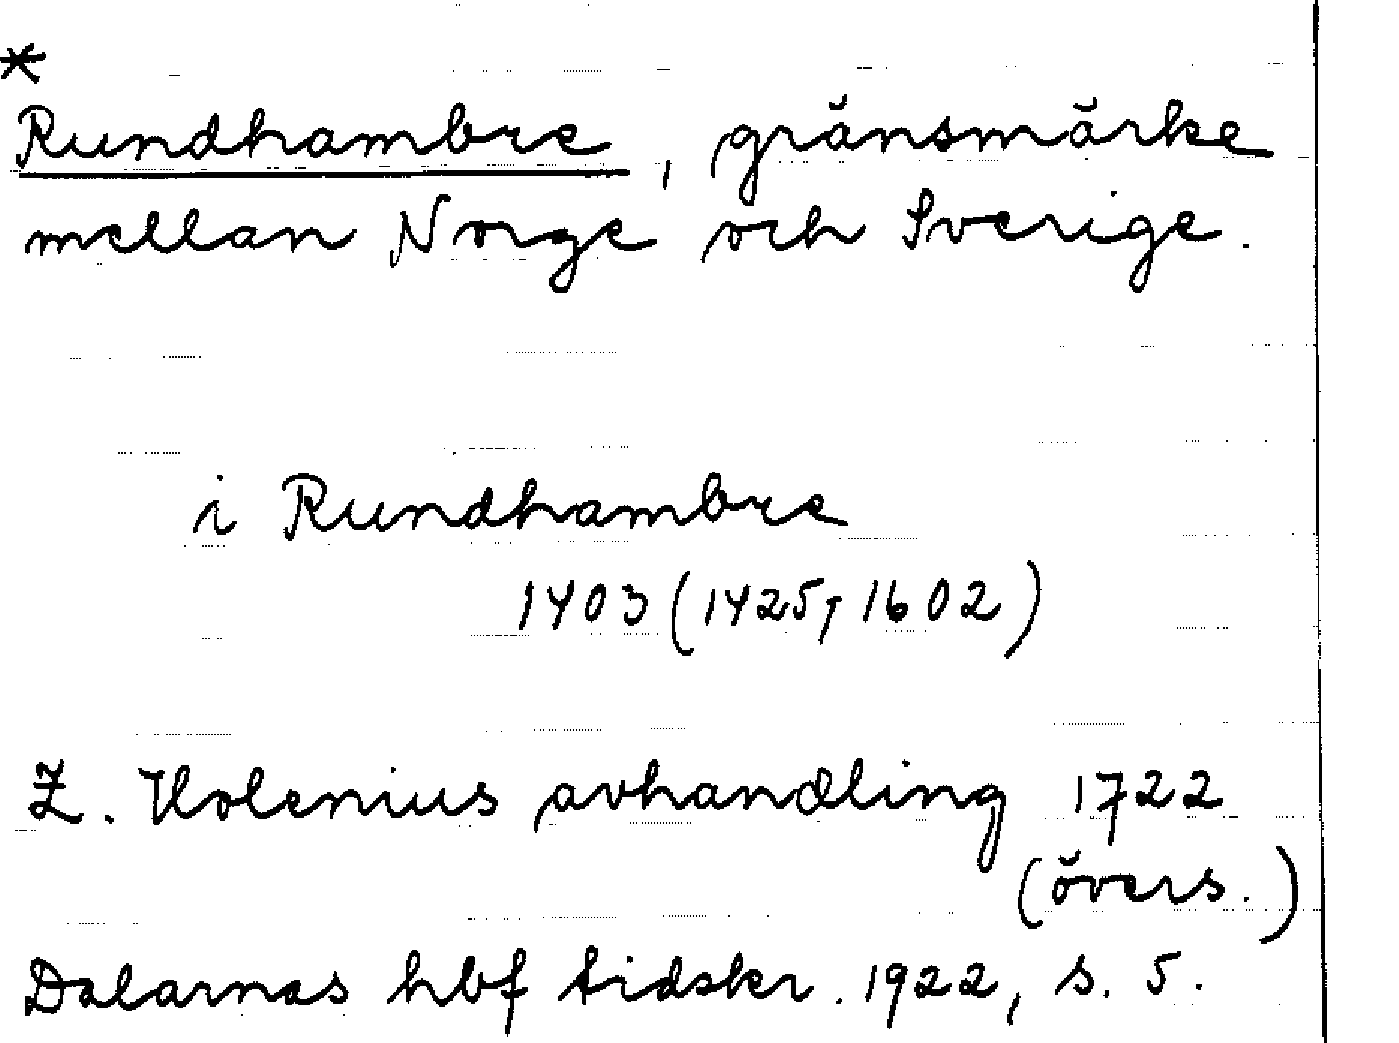 *
Rundhambre, gränsmärke
mellan Norge och Sverige.
i Rundhambre
1403 (1425, 1602)
Z. Holenius avhandling 1722
(övers.)
Dalarnas hbf tidskr. 1922, s. 5.